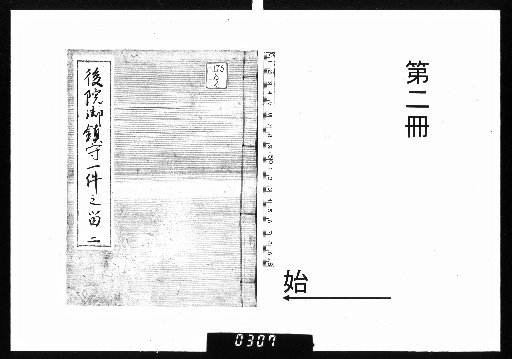 第二冊
始
後院御鎮守一件之留 二
0307